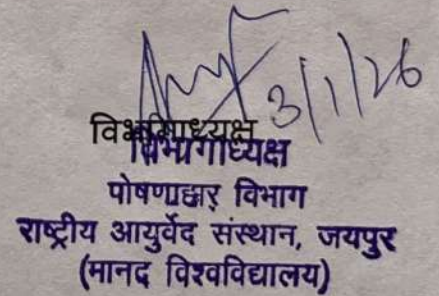 3/1/26
विभागाध्यक्ष
विभागाध्यक्ष
पोषणाहार विभाग
राष्ट्रीय आयुर्वेद संस्थान, जयपुर
(मानद विश्वविद्यालय)